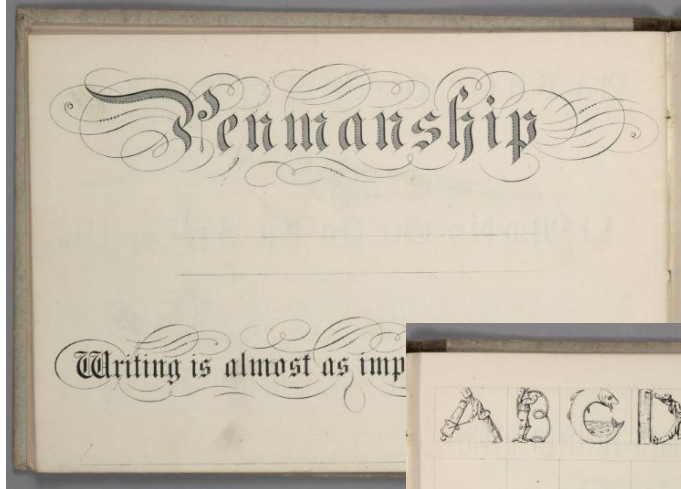 Penmanship
Writing is almost as imp
A B C D